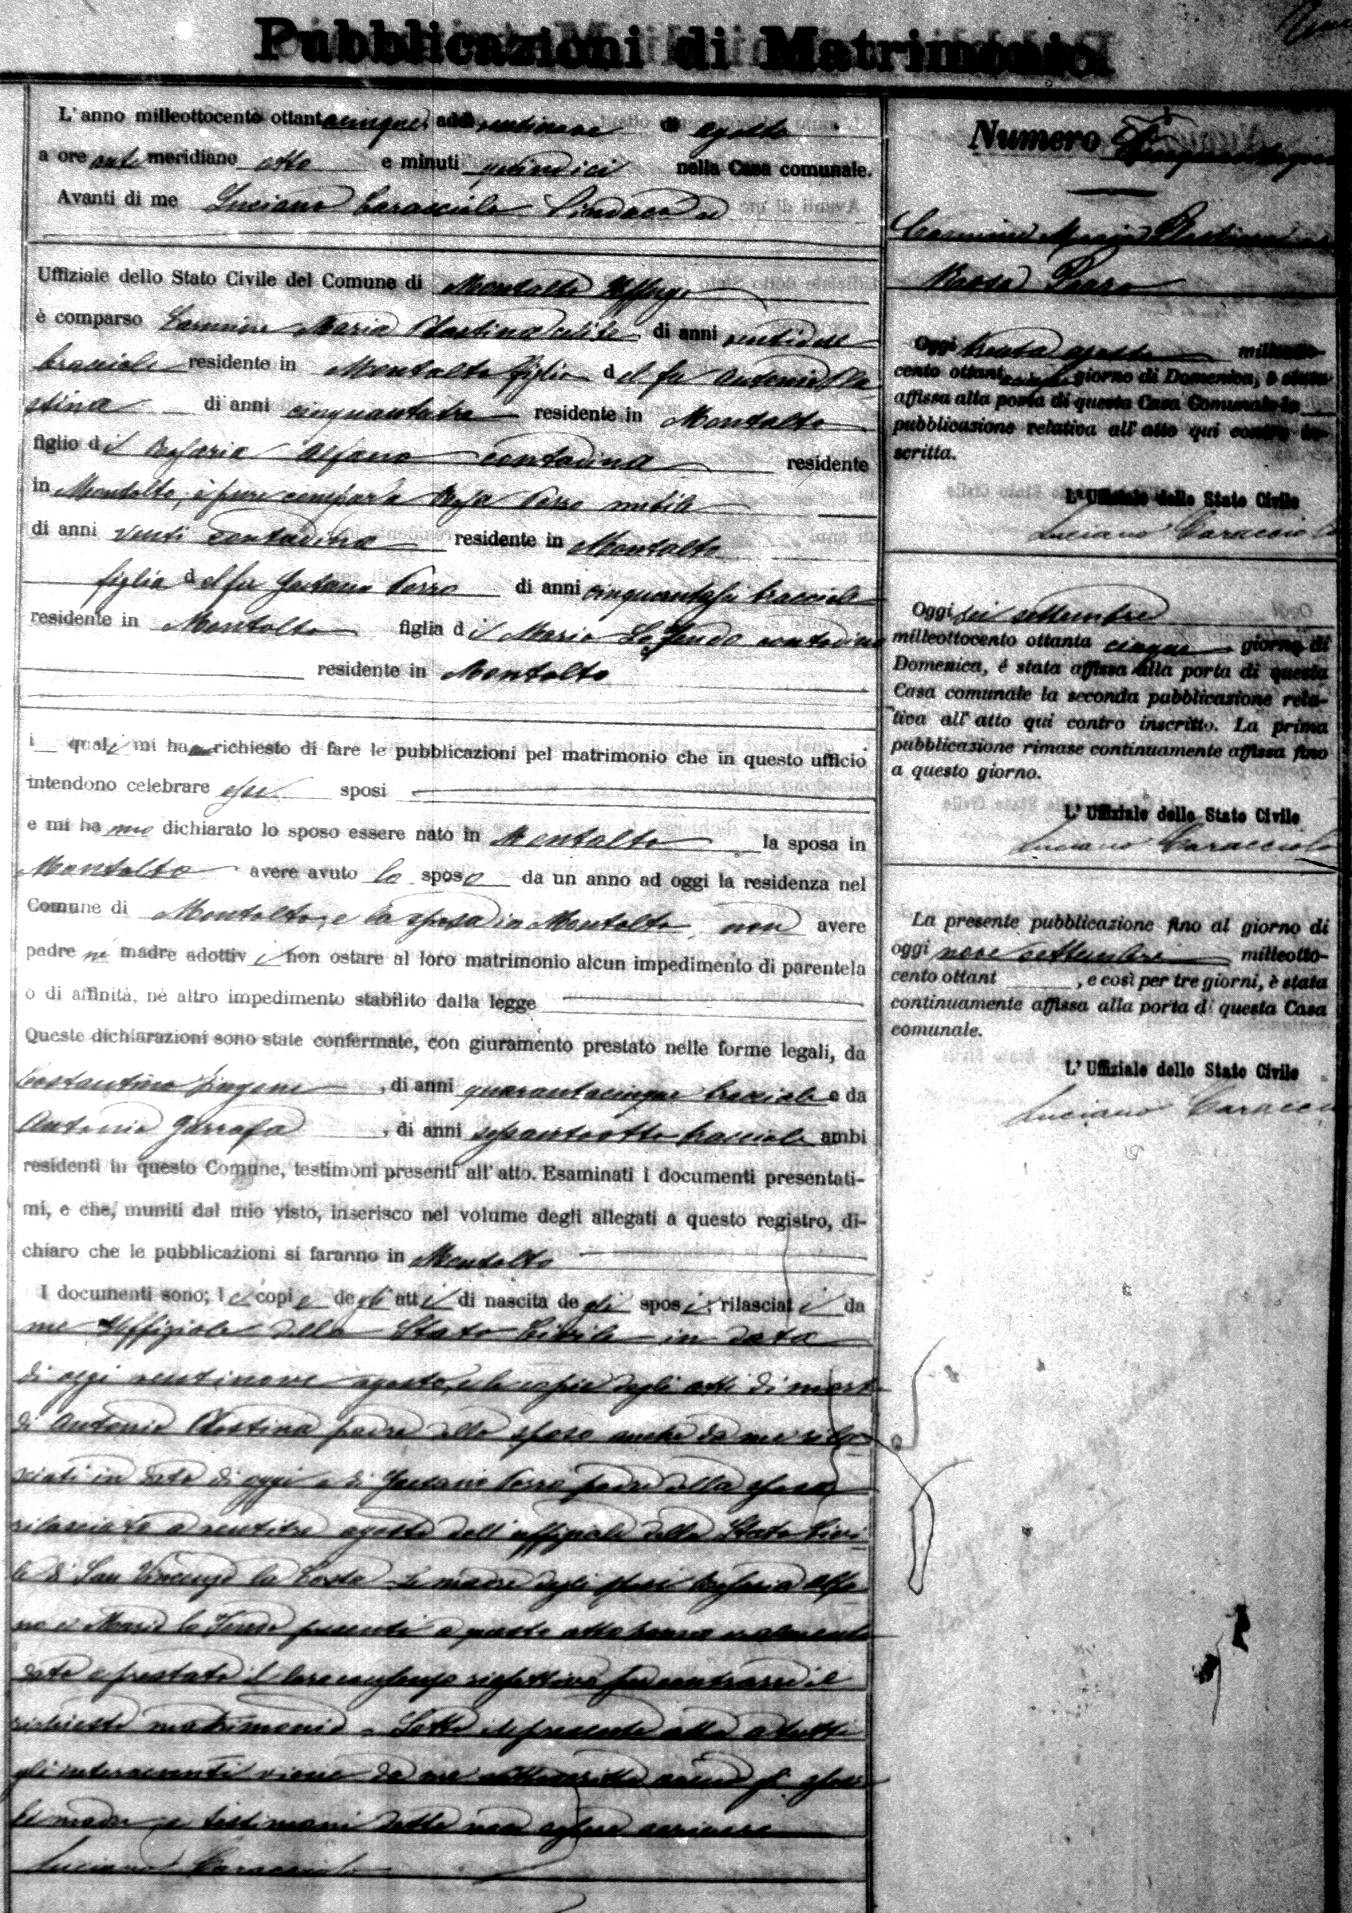 Pubblicazioni di Matrimonio
L'anno milleottocento ottantacinque, addì ventinove di agosto
a ore antimeridiane otto e minuti quindici nella Casa comunale.
Avanti di me Luciano Caracciolo Sindaco ed
Uffiziale dello Stato Civile del Comune di Montalto Uffugo
è comparso Carmine Maria Plastina celibe di anni ventisette
bracciale residente in Montalto figlio del fu Antonio Pla
stina di anni cinquantatre residente in Montalto
figlio di Rosaria Alfano contadina residente
in Montalto, è pure comparsa Rosa Porro nubile
di anni venti contadina residente in Montalto
figlia del fu Gaetano Porro di anni cinquantasei bracciale
residente in Montalto figlia di Maria Lo Tendo contadina
residente in Montalto
i quali mi hanno richiesto di fare le pubblicazioni pel matrimonio che in questo ufficio
intendono celebrare essi sposi
e mi hanno dichiarato lo sposo essere nato in Montalto la sposa in
Montalto avere avuto lo sposo da un anno ad oggi la residenza nel
Comune di Montalto, e la sposa in Montalto, non avere
padre nè madre adottivi non ostare al loro matrimonio alcun impedimento di parentela
o di affinità, nè altro impedimento stabilito dalla legge
Queste dichiarazioni sono state confermate, con giuramento prestato nelle forme legali, da
Costantino , di anni quarantacinque bracciale e da
Antonio Garrafa , di anni sessantotto bracciale ambi
residenti in questo Comune, testimoni presenti all'atto. Esaminati i documenti presentati-
mi, e che, muniti dal mio visto, inserisco nel volume degli allegati a questo registro, di-
chiaro che le pubblicazioni si faranno in Montalto
I documenti sono; le copie degli atti di nascita degli sposi; rilasciati da
me Uffiziale dello Stato Civile in data
di oggi ventinove agosto, e le copie degli atti di morte
di Antonio Plastina padre dello sposo anche da me rila
sciati in data di oggi e di Gaetano Porro padre della sposa
rilasciato a ventitre agosto dell'uffiziale dello Stato Civi
le di San Vincenzo la Costa. Le madri degli sposi Rosaria Alfa
no e Maria lo Tendo presenti a questo atto hanno
dato e prestato il loro consenso rispettivo per contrarre il
richiesto matrimonio. Letto il presente atto a tutti
gli intervenuti viene da me sottoscritto avendo gli sposi
le madri e testimoni detto non sapere scrivere
Luciano Caracciolo
Numero
Carmine Maria Plastina e
Rosa Porro
Oggi trenta agosto milleotto-
cento ottantacinque giorno di Domenica, è stata
affissa alla porta di questa Casa Comunale la
pubblicazione relativa all'atto qui contro in-
scritta.
L'Uffiziale dello Stato Civile
Luciano Caracciolo
Oggi sei settembre
milleottocento ottanta cinque giorno di
Domenica, é stata affissa alla porta di questa
Casa comunale la seconda pubblicazione rela-
tiva all'atto qui contro inscritto. La prima
pubblicazione rimase continuamente affissa fino
a questo giorno.
L'Uffiziale dello Stato Civile
Luciano Caracciolo
La presente pubblicazione fino al giorno di
oggi nove settembre milleotto-
cento ottant , e così per tre giorni, è stata
continuamente affissa alla porta di questa Casa
comunale.
L'Uffiziale dello Stato Civile
Luciano Caracciolo